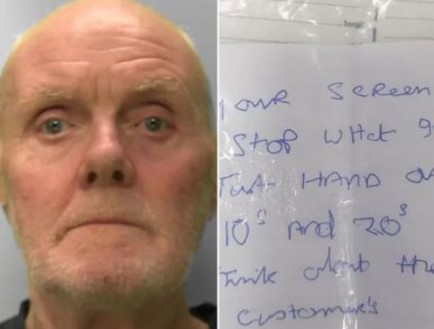 your screen
stop what
Just HAND ov
10's And 20's
Think about the
customer's